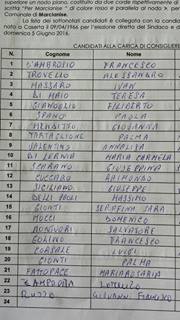 superiore su nodo piano, costituito da due corde rispettivamente di
scritta "Per Marcianise" di color rosso e parallelo al nodo a, per
Comunale di Marcianise.
La lista dei sottonotati candidati è collegata con la candida
nato a Caserta il 09/04/1966 per l'elezione diretta del Sindaco e d
domenica 5 Giugno 2016.
CANDIDATI ALLA CARICA DI CONSIGLIERE
N. Cognome Nome
1 D'AMBROSIO FRANCESCO
2 TROVELLO ALESSANDRO
3 MASSARO IVAN
4 DI MAIO TERESA
5 GIANOGLIO FILIBERTO
6 SPANO PAOLA
7 MENDITTO GIOVANNA
8 TARTAGLIONE PALMA
9 VALENTINO ANNALISA
10 DI LERNIA MARIA CARMELA
11 SCARANO GIUSEPPINA
12 CUCCARO RAIMONDO
13 SICILIANO GIUSEPPE
14 DELLI PAOLI MASSIMO
15 GIONTI SERAFINA SARA
16 MUCCI DOMENICO
17 SALVATORE
18 GOLINO FRANCESCO
19 CORSALE LUIGI
20 GIONTI PALMA
21 MARIAROSARIA
22 ZAMPOLLA LORENZO
23 RUSSO GIOVANNI FRANCESCO
24